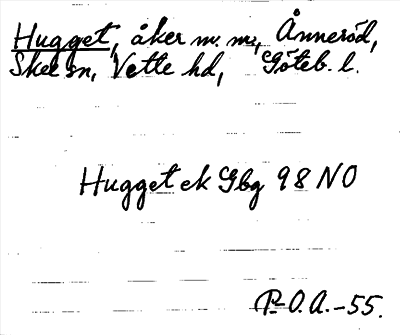 Hugget, åker m. m., Ånneröd,
Skee sn, Vette hd, Göteb. l.
Hugget ek Gbg 98 NO
P-O.A.-55.